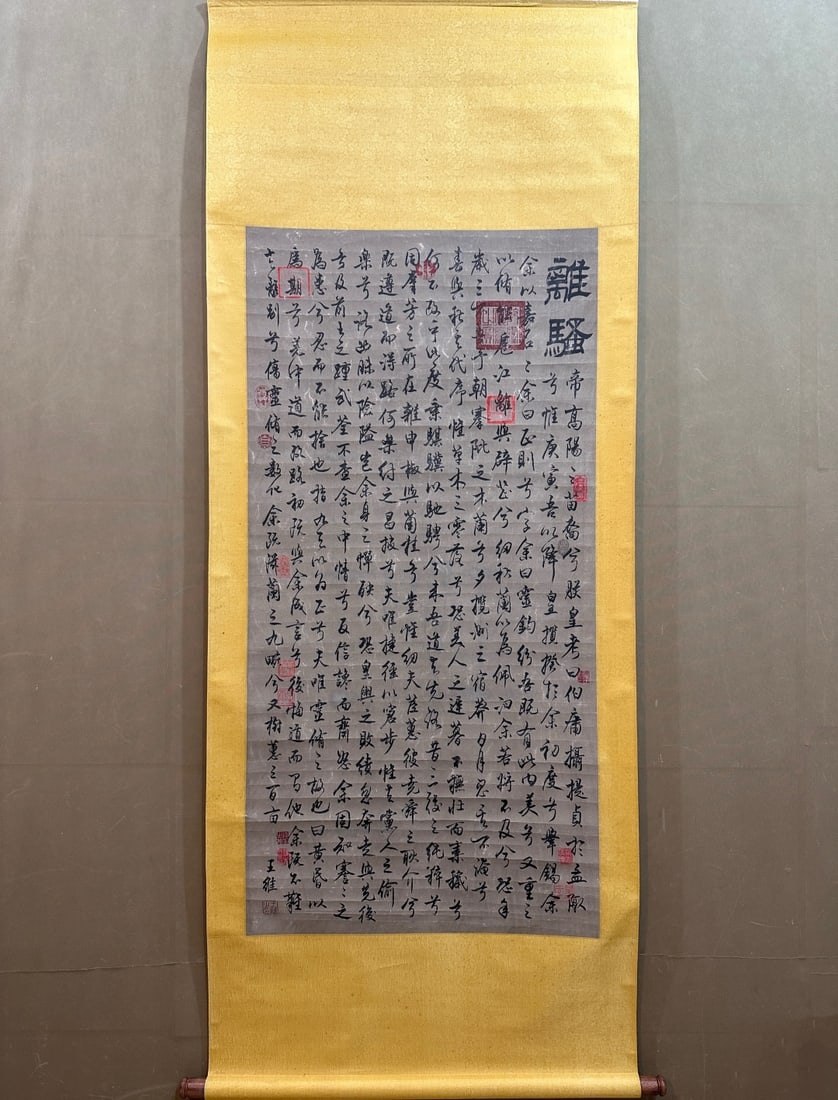 離騷
帝高陽之苗裔兮朕皇考曰伯庸攝提貞於孟陬
兮惟庚寅吾以降皇攬揆於余初度兮肇錫余
余以嘉名名余曰正則兮字余曰靈鈞紛吾既有此內美兮又重之
以脩能扈江離與辟芷兮紉秋蘭以為佩汩余若將不及兮恐年
歲之吾與朝搴阰之木蘭兮夕攬洲之宿莽日月忽其不淹兮
春與秋其代序惟草木之零落兮恐美人之遲暮不撫壯而棄穢兮
何不改乎此度乘騏驥以馳騁兮來吾道夫先路昔三後之純粹兮
固眾芳之所在雜申椒與菌桂兮豈惟紉夫茞蕙彼堯舜之耿介兮
既遵道而得路何桀紂之昌披兮夫唯捷徑以窘步惟夫黨人之偷
樂兮路幽昧以險隘豈余身之憚殃兮恐皇輿之敗績忽奔走與先後
兮及前王之踵武荃不查余之中情兮反信讒而齌怒余固知謇謇之
為患兮忍而不能捨也指九天以為正兮夫唯靈脩之故也曰黃昏以
為期兮羌中道而改路初既與余成言兮後悔遁而有他余既不難
夫離別兮傷靈脩之數化余既滋蘭之九畹兮又樹蕙之百畝
王維